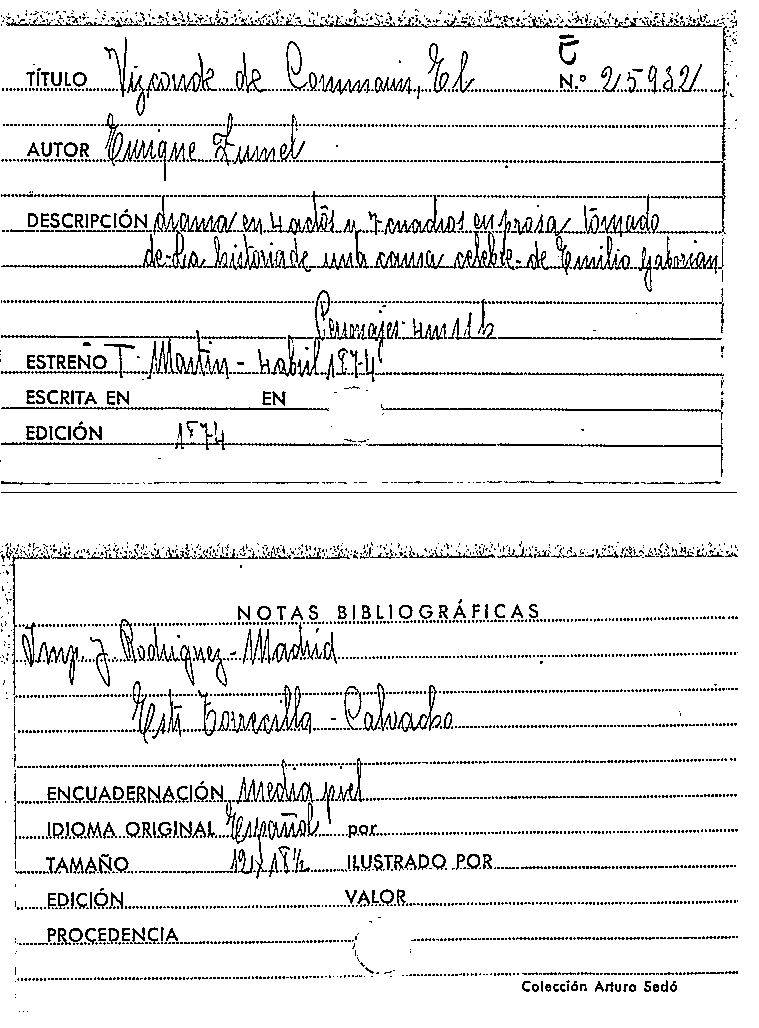 TÍTULO Vizconde de Commarin, El N.º 25932
AUTOR Enrique Zumel
DESCRIPCIÓN drama en 4 actos y 7 cuadros en prosa tomado
de la historia de una causa celebre de Emilio Gaborian
Personajes 4m 11h
ESTREÑO T. Martin - 4 abril 1874
ESCRITA EN EN
EDICIÓN 1874
NOTAS BIBLIOGRÁFICAS
Imp. J Rodriguez - Madrid
Torrecilla - Calvacho
ENCUADERNACIÓN Media piel
IDIOMA ORIGINAL Español por
TAMAÑO 12/18½ ILUSTRADO POR
EDICIÓN VALOR
PROCEDENCIA
Colección Arturo Sedó